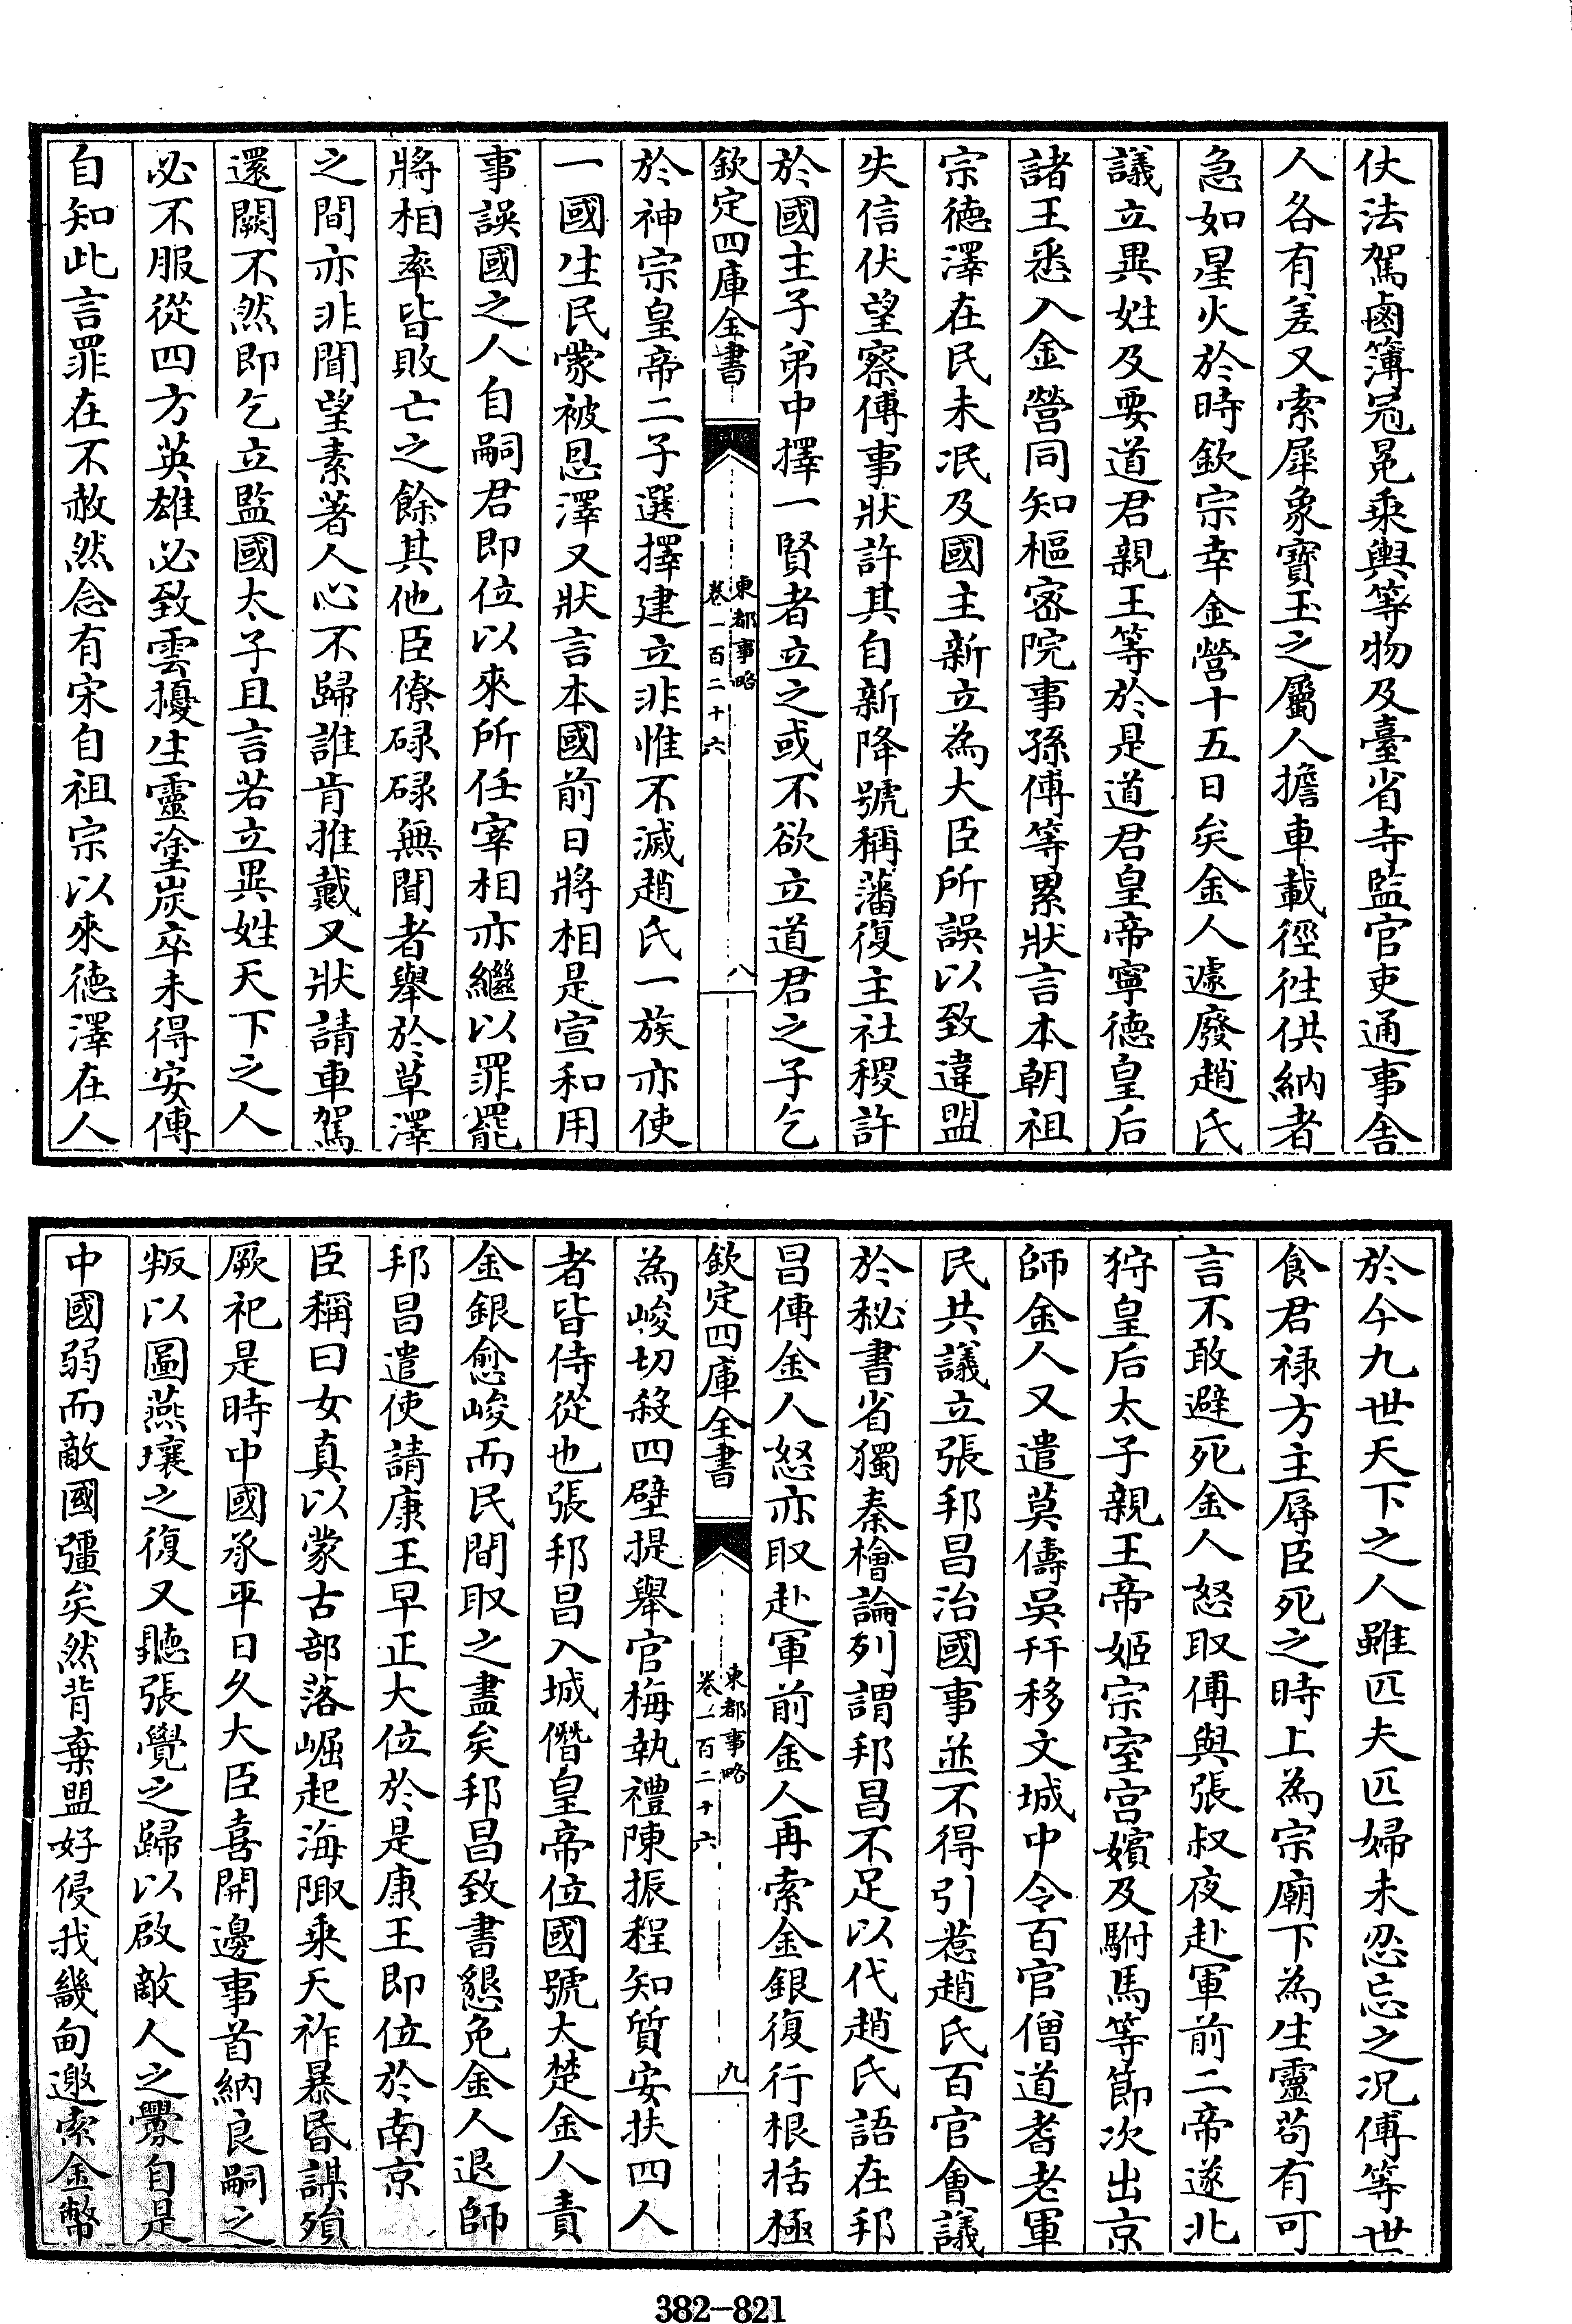 仗法駕鹵簿冠冕乘輿等物及臺省寺監官吏通事舍
人各有差又索犀象寶玉之屬人擔車載徑往供納者
急如星火於時欽宗幸金營十五日矣金人遽廢趙氏
議立異姓及要道君親王等於是道君皇帝寧德皇后
諸王悉入金營同知樞密院事孫傅等累狀言本朝祖
宗德澤在民未泯及國主新立為大臣所誤以致違盟
失信伏望察傅事狀許其自新降號稱藩復主社稷許
於國主子弟中擇一賢者立之或不欲立道君之子乞
欽定四庫全書
東都事略
卷一百二十六
八
於神宗皇帝二子選擇建立非惟不滅趙氏一族亦使
一國生民蒙被恩澤又狀言本國前日將相是宣和用
事誤國之人自嗣君即位以來所任宰相亦繼以罪罷
將相率皆敗亡之餘其他臣僚碌碌無聞者舉於草澤
之間亦非聞望素著人心不歸誰肯推戴又狀請車駕
還闕不然即乞立監國太子且言若立異姓天下之人
必不服從四方英雄必致雲擾生靈塗炭卒未得安傅
自知此言罪在不赦然念有宋自祖宗以來德澤在人
於今九世天下之人雖匹夫匹婦未忍忘之況傅等世
食君祿方主辱臣死之時上為宗廟下為生靈苟有可
言不敢避死金人怒取傅與張叔夜赴軍前二帝遂北
狩皇后太子親王帝姬宗室宮嬪及駙馬等節次出京
師金人又遣莫儔吳幵移文城中令百官僧道耆老軍
民共議立張邦昌治國事並不得引惹趙氏百官會議
於秘書省獨秦檜論列謂邦昌不足以代趙氏語在邦
昌傳金人怒亦取赴軍前金人再索金銀復行根括極
欽定四庫全書
東都事略
卷一百二十六
九
為峻切殺四壁提舉官梅執禮陳振程知質安扶四人
者皆侍從也張邦昌入城僭皇帝位國號大楚金人責
金銀愈峻而民間取之盡矣邦昌致書懇免金人退師
邦昌遣使請康王早正大位於是康王即位於南京
臣稱曰女真以蒙古部落崛起海陬乘天祚暴昏謀殞
厥祀是時中國承平日久大臣喜開邊事首納良嗣之
叛以圖燕壤之復又聽張覺之歸以啟敵人之釁自是
中國弱而敵國彊矣然背棄盟好侵我畿甸邀索金幣
382-821